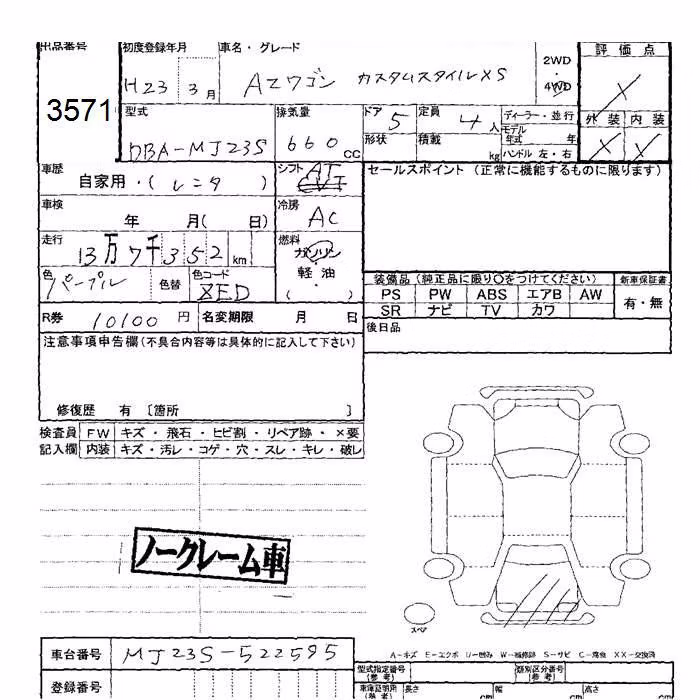 出品番号 初度登録年月 車名・グレード 2WD・4WD 評価点
3571 H23 3月 AZワゴン カスタムスタイルXS X
型式 排気量 ドア 5 定員 4人 ディーラー・並行 外装 内装
DBA-MJ23S 660cc 形状 積載 kg モデル年式 年 ハンドル 左・右 X X
車歴 自家用・(レンタ) シフト AT セールスポイント (正常に機能するものに限ります)
車検 年 月( 日) 冷房 AC
走行 13万7千352km 燃料 ガソリン・軽油 ( )
色 パープル 色替 色コード 装備品 (純正品に限り○をつけてください) 新車保証書
PS PW ABS エアB AW 有・無
SR ナビ TV カワ
R券 10100円 名変期限 月 日 後日品
注意事項申告欄(不具合内容等は具体的に記入して下さい)
修復歴 有 〔箇所 〕
検査員 FW キズ・飛石・ヒビ割・リペア跡・×要
記入欄 内装 キズ・汚レ・コゲ・穴・スレ・キレ・破レ
ノークレーム車
スペア
A-キズ E-エクボ U-凹み W-補修跡 S-サビ C-腐食 XX-交換済
車台番号 MJ23S-522595 型式指定番号(参考) 類別区分番号(参考)
登録番号 車庫証明用(参考) 長さ cm 幅 cm 高さ cm